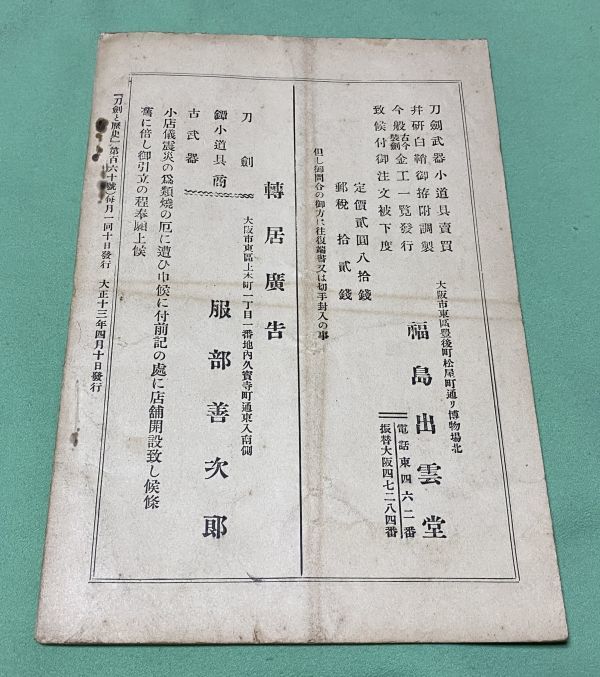 刀劍武器小道具賣買
幷研白鞘御拵附調製
今般古今裝劍金工一覽發行
致候付御注文被下度
定價貳圓八拾錢
郵稅拾貳錢
大阪市東區豐後町松屋町通リ博物場北
福島出雲堂
電話東四六二番
振替大阪四七二八四番
但し御問合の御方は往復端書又は切手封入の事
轉居廣告
刀劍
鐔小道具商
古武器
大阪市東區上本町一丁目一番地內久寶寺町通東入南側
服部善次郎
小店儀震災の爲類燒の厄に遭ひ申候に付前記の處に店舖開設致し候條
舊に倍し御引立の程奉願上候
『刀劍と歷史』第百六十號(每月一回十日發行 大正十三年四月十日發行